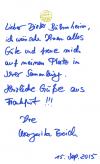 Lieber Dieter Böhmheim,
ich wünsche Ihnen alles
Gute und freue mich
auf meinen Photo
in Ihrer Sammlung.
Herzliche Grüße aus
Frankfurt !!!
Ihre
Margarita Broich
15. Sep. 2015